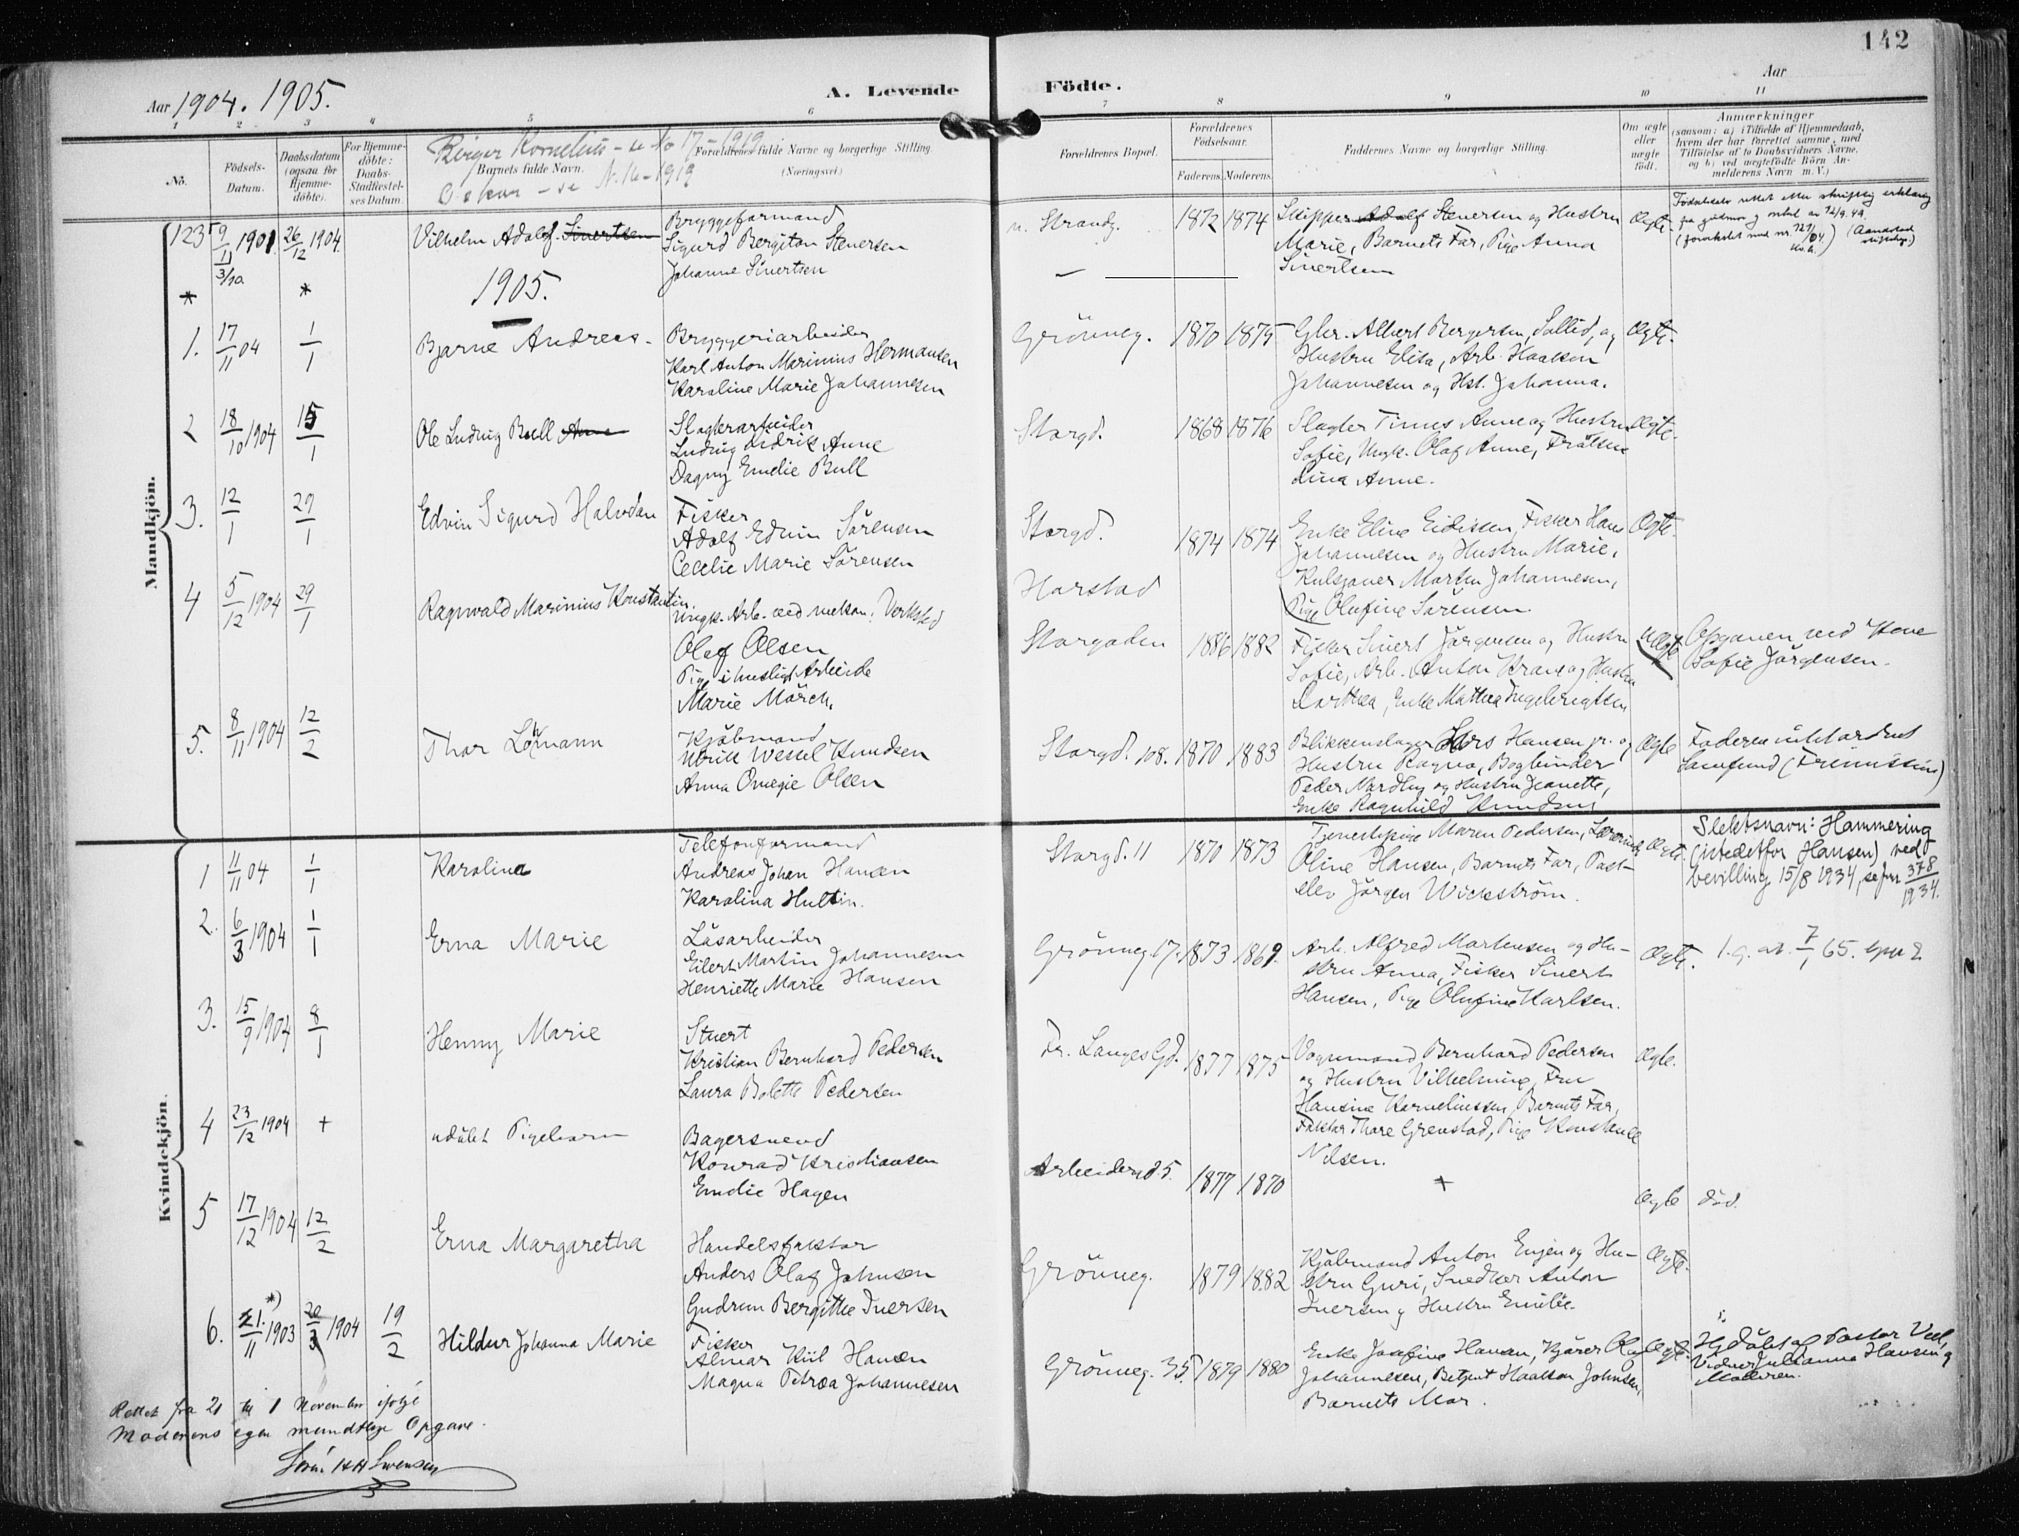 142
Aar 1904. 1905.
A. Levende
Födte.
Aar
1 2 3 4 5 6 7 8 9 10 11
No.
Födsels-
Datum.
Daabsdatum
(ogsaa for
Hjemme-
döbte).
For Hjemme-
döbte:
Daabs-
Stadfæstel-
ses Datum.
Birger Kornelius - se No 17 - 1919
Barnets fulde Navn.
Oskar - se N. 16 - 1919
Forældrenes fulde Navne og borgerlige Stilling.
(Næringsvei)
Forældrenes Bopæl.
Forældrenes
Födselsaar.
Faderens. Moderens.
Faddernes Navne og borgerlige Stilling.
Om ægte
eller
uægte
födt.
Anmærkninger
(saasom: a) i Tilfælde af Hjemmedaab,
hvem der har forrettet samme, med
Tilföielse af to Daabsvidners Navne,
og b) ved uægtefödte Börn An-
melderens Navn m. V.)
Mandkjön.
123 9/11 1901. 26/12 1904.
3/10
Vilhelm Adolf Sivertsen
Bryggeformand
Sigurd Bergiton Stenersen
Johanne Sivertsen
n. Strandg. 1872 1874
Skipper Adolf Stenersen og Hustru
Marie, Barnets Far, Pige Anna
Sivertsen
Ægte.
1905.
1. 17/11 04 1/1 Bjarne Andreas
Bryggeriarbeider
Karl Anton Marinius Hermansen
Karoline Marie Johannesen
Grönneg. 1870 1875
Gbr. Albert Bergersen, Sollid, og
Hustru Elisa, Arb. Haakon
Johannesen og Hst. Johanna.
Ægte.
2 18/10 1904 15/1 Ole Ludvig Bull
Slagterarbeider
Ludvig Fredrik Anne
Dagny Emelie Bull
Storgd. 1868 1876
Slagter Tinus Anne og Hustru
Sofie, Ungk. Olaf Anne, Fröken
Lina Anne.
Ægte.
3. 12/1 29/1 Edvin Sigurd Halvdan
Fisker
Adolf Edvin Sörensen
Cecelie Marie Sörensen
Storgd. 1874 1874
Harstad
Enke Eline Eidissen, Fisker Hans
Johannesen og Hustru Marie,
Kulsjauer Morten Johannesen,
Pige Olufine Sörensen.
Ægte.
4 5/12 1904 29/1 Ragnvald Marinius Konstantin.
Ungk. Arb. ved mekan. Verksted
Olaf Olsen
Pige i husligt Arbeide
Marie Mörch.
Storgaden 1886 1882
Fisker Sivert Jörgensen og Hustru
Sofie, Arb. Anton Krane og Hustru
Dorthea, Enke Mathea Ingebrigtsen
Uægte
Opgaven ved Kone
Sofie Jörgensen.
5. 8/11 1904 12/2 Thor Lohmann
Kjöbmand
Ulrik Wessel Knudsen
Anna Omegie Olsen
Storgd. 108. 1870 1883
Blikkenslager Hars Hansen jr. og
Hustru Ragna, Bogbinder
Peder Nordby og Hustru Jeanette,
Enke Ragnhild Knudsen
Ægte
Faderen uktrdt
Samfund (Frimission)
Kvindekjön.
1 11/11 04 1/1 Karolina
Telefonformand
Andreas Johan Hansen
Karolina Hultin.
Storgd. 11 1870 1873
Tjenestepige Maren Pedersen, Lærerinde
Oline Hansen, Barnets Far, Post-
elev Jörgen Wickström.
Ægte.
Slektsnavn: Hammering
(istedetfor Hansen) ved
bevilling 15/8 1934, se jnr 378/1934.
2. 6/3 1904 1/1 Erna Marie
Läsarbeider
Eilert Martin Johannesen
Henriette Marie Hansen
Grönneg 17. 1873 1869.
Arb. Alfred Mortensen og Hu-
stru Anna, Fisker Sivert
Hansen, Pige Olufine Karlsen.
Ægte.
1. g. at. 7/1 65.
3. 15/9 1904 8/1 Henny Marie
Stuert
Kristian Bernhard Pedersen
Laura Bolette Pedersen
Fr. Langes Gd. 1877 1875
Vognmand Bernhard Pedersen
og Hustru Vilhelmine, Fru
Hansine Korneliussen, Barnets Far,
Faktor Thore Grenstad, Pige Konstance
Nilsen.
Ægte.
4 23/12 1904 + udöbt Pigebarn
Bagersvend
Konrad Kristiansen
Emelie Hagen
Arbeidergd. 5. 1877 1870 + Ægte död.
5 17/12 1904 12/2 Erna Margaretha
Handelsfaktor
Anders Olaf Johnsen
Gudrun Bergitte Iversen
Grönneg. 1879 1882
Kjöbmand Anton Enjen og Hu-
stru Guri, Snedker Anton
Iversen og Hustru Emilie.
Ægte.
6. 21.*)/11 1903 20/3 1904 19/2 Hildur Johanna Marie
Fisker
Almar Kiil Hansen
Magna Petræa Johannesen
Grönneg. 35. 1879 1880
Enke Josefine Hansen, Kjörer Olaf
Johannesen, Betjent Haakon Johnsen,
Barnets Mor.
Ægte.
Hj. döbt af Pastor Veel,
Vidner Julianna Hansen og
Moderen.
Rettet fra 21 til 1 November ifölge
Moderens egen mundtlige Opgave.
Sörn HH Svensen